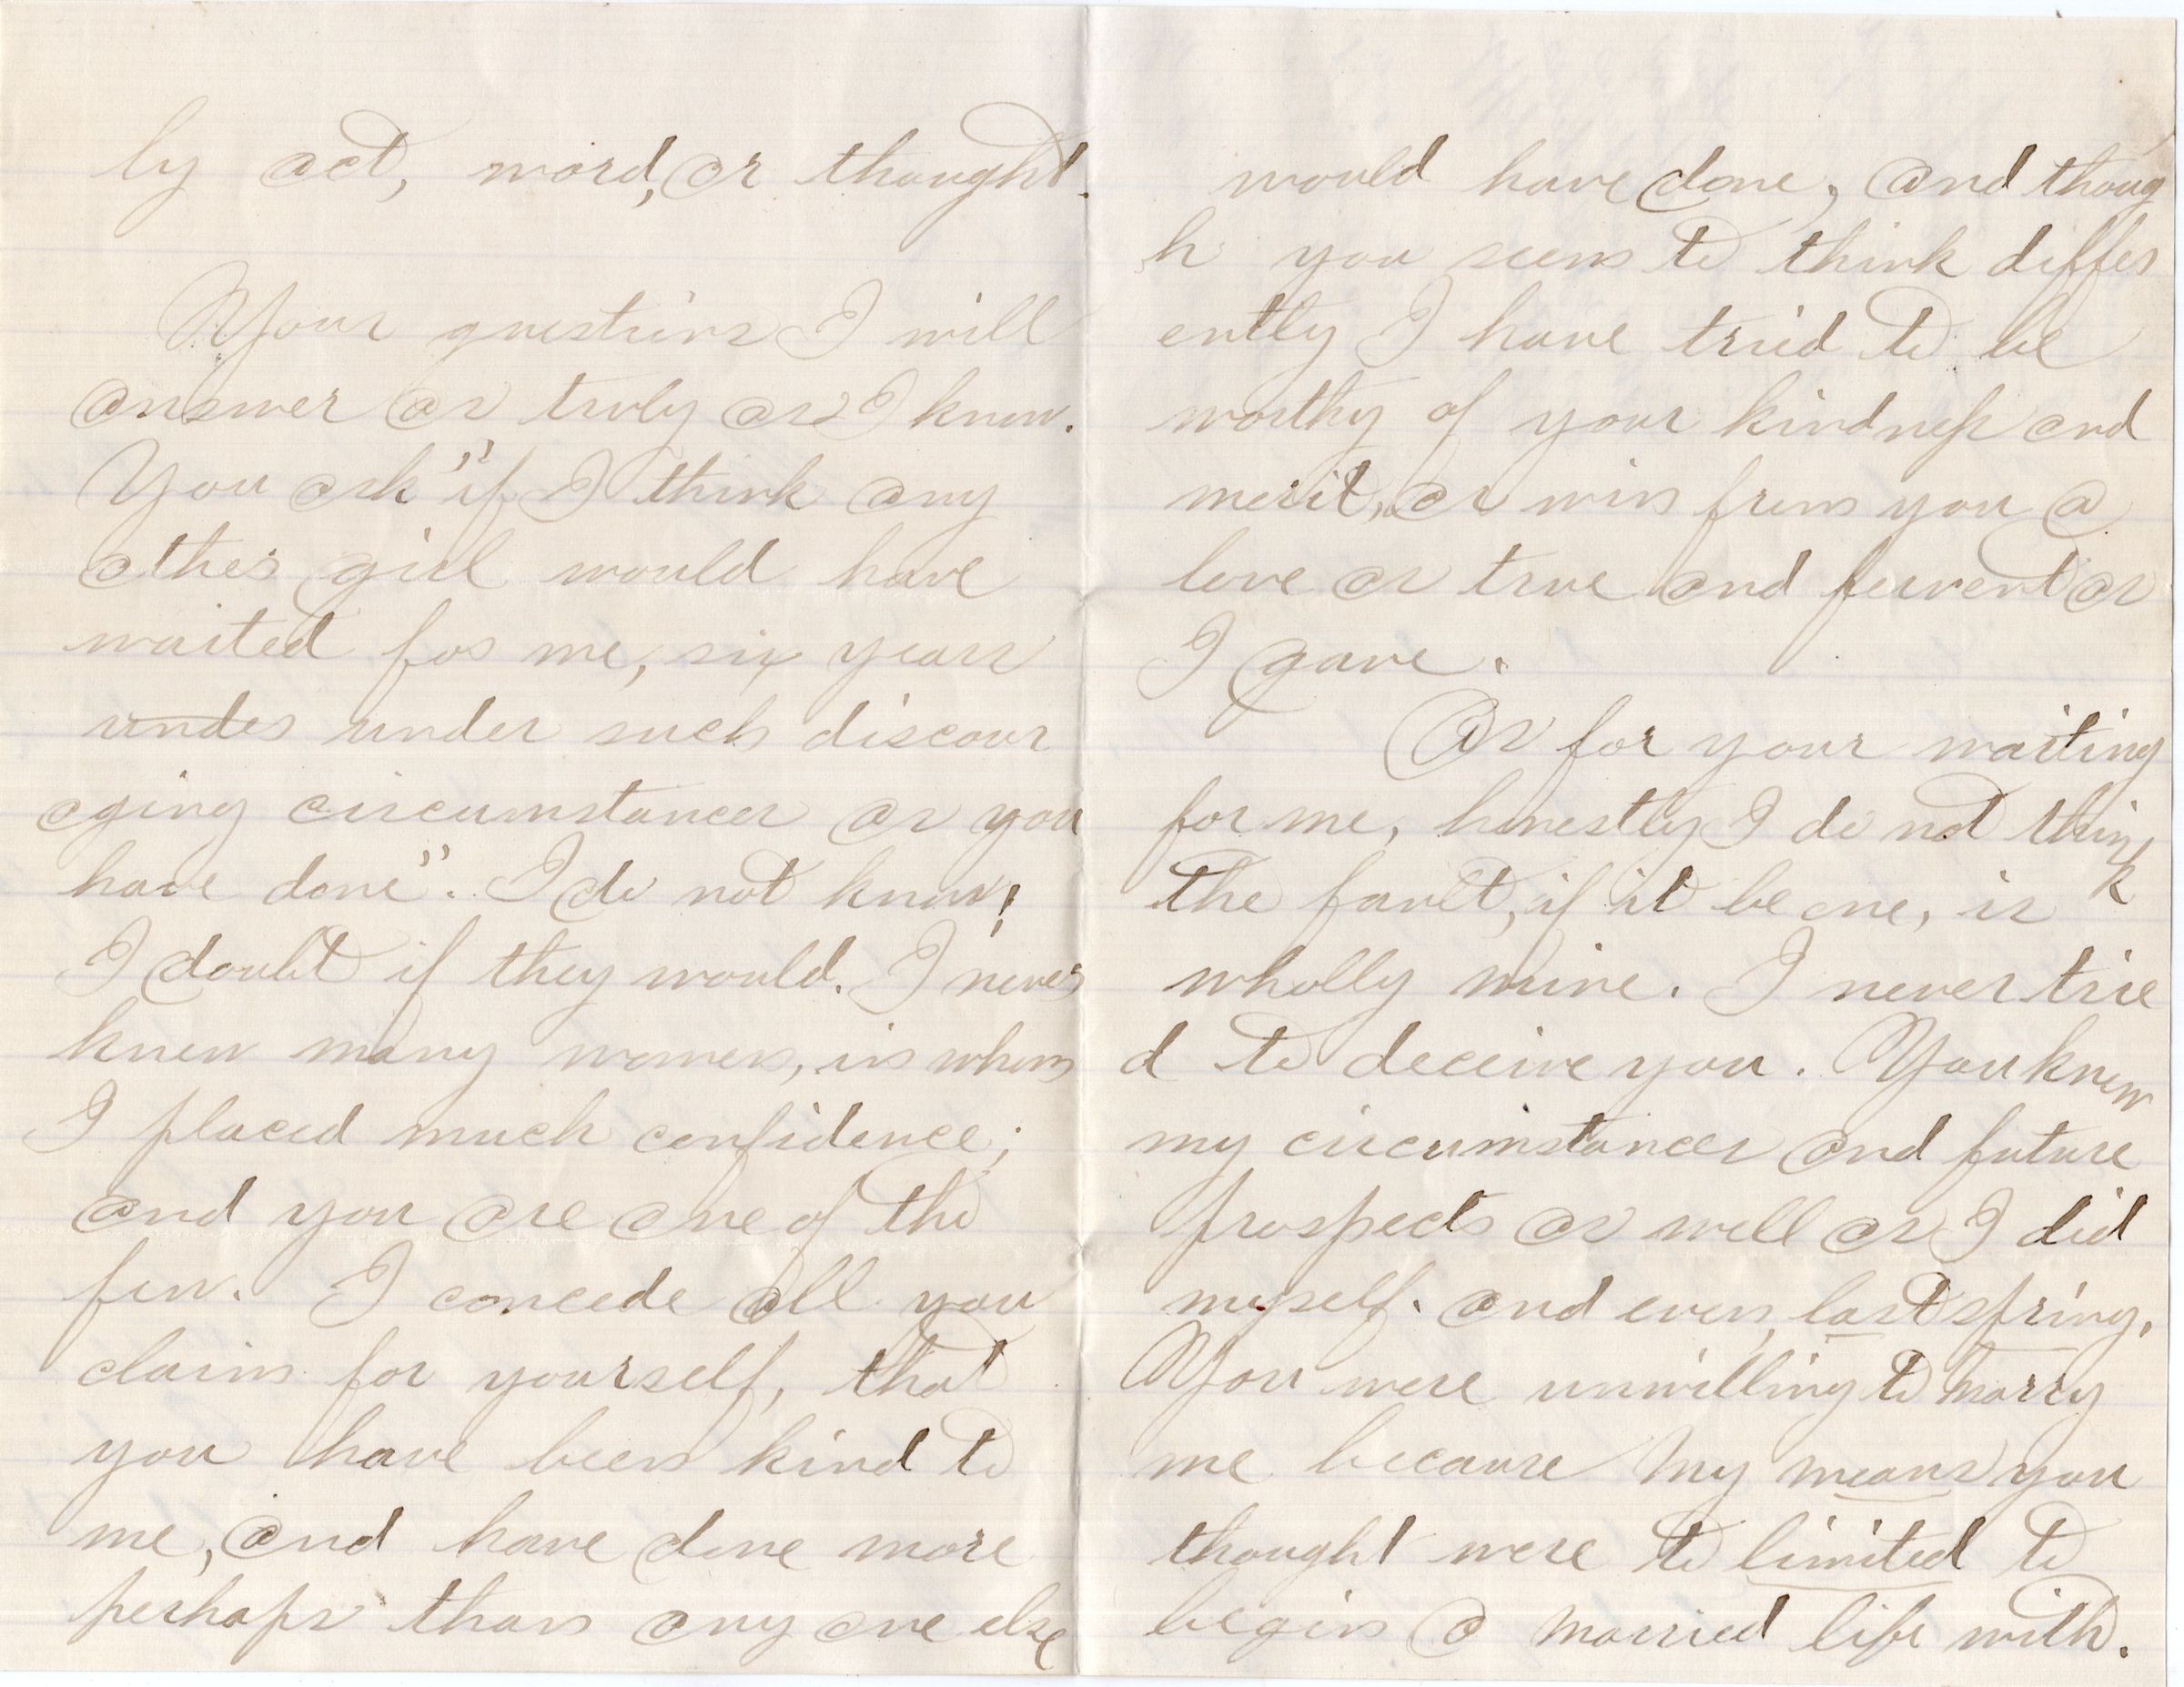 ly act, word, or thought.
Your questions I will
answer as truly as I know.
You ask "if I think any
other girl would have
waited for me, six years
under under such discour
aging circumstances as you
have done". I do not know!
I doubt if they would. I never
knew many women, in whom
I placed much confidence;
and you are one of the
few. I concede all you
claim for yourself, that
you have been kind to
me, and have done more
perhaps than any one else
would have done, and thoug
h you seem to think differ
ently I have tried to be
worthy of your kindness and
merit, or win from you a
love as true and fervent as
I gave.
As for your waiting
for me, honestly I do not think
the fault, if it be one, is
wholly mine. I never trie
d to deceive you. You knew
my circumstances and future
prospects as well as I did
myself. and even last spring,
You were unwilling to marry
me because my means you
thought were to limited to
begin a married life with.